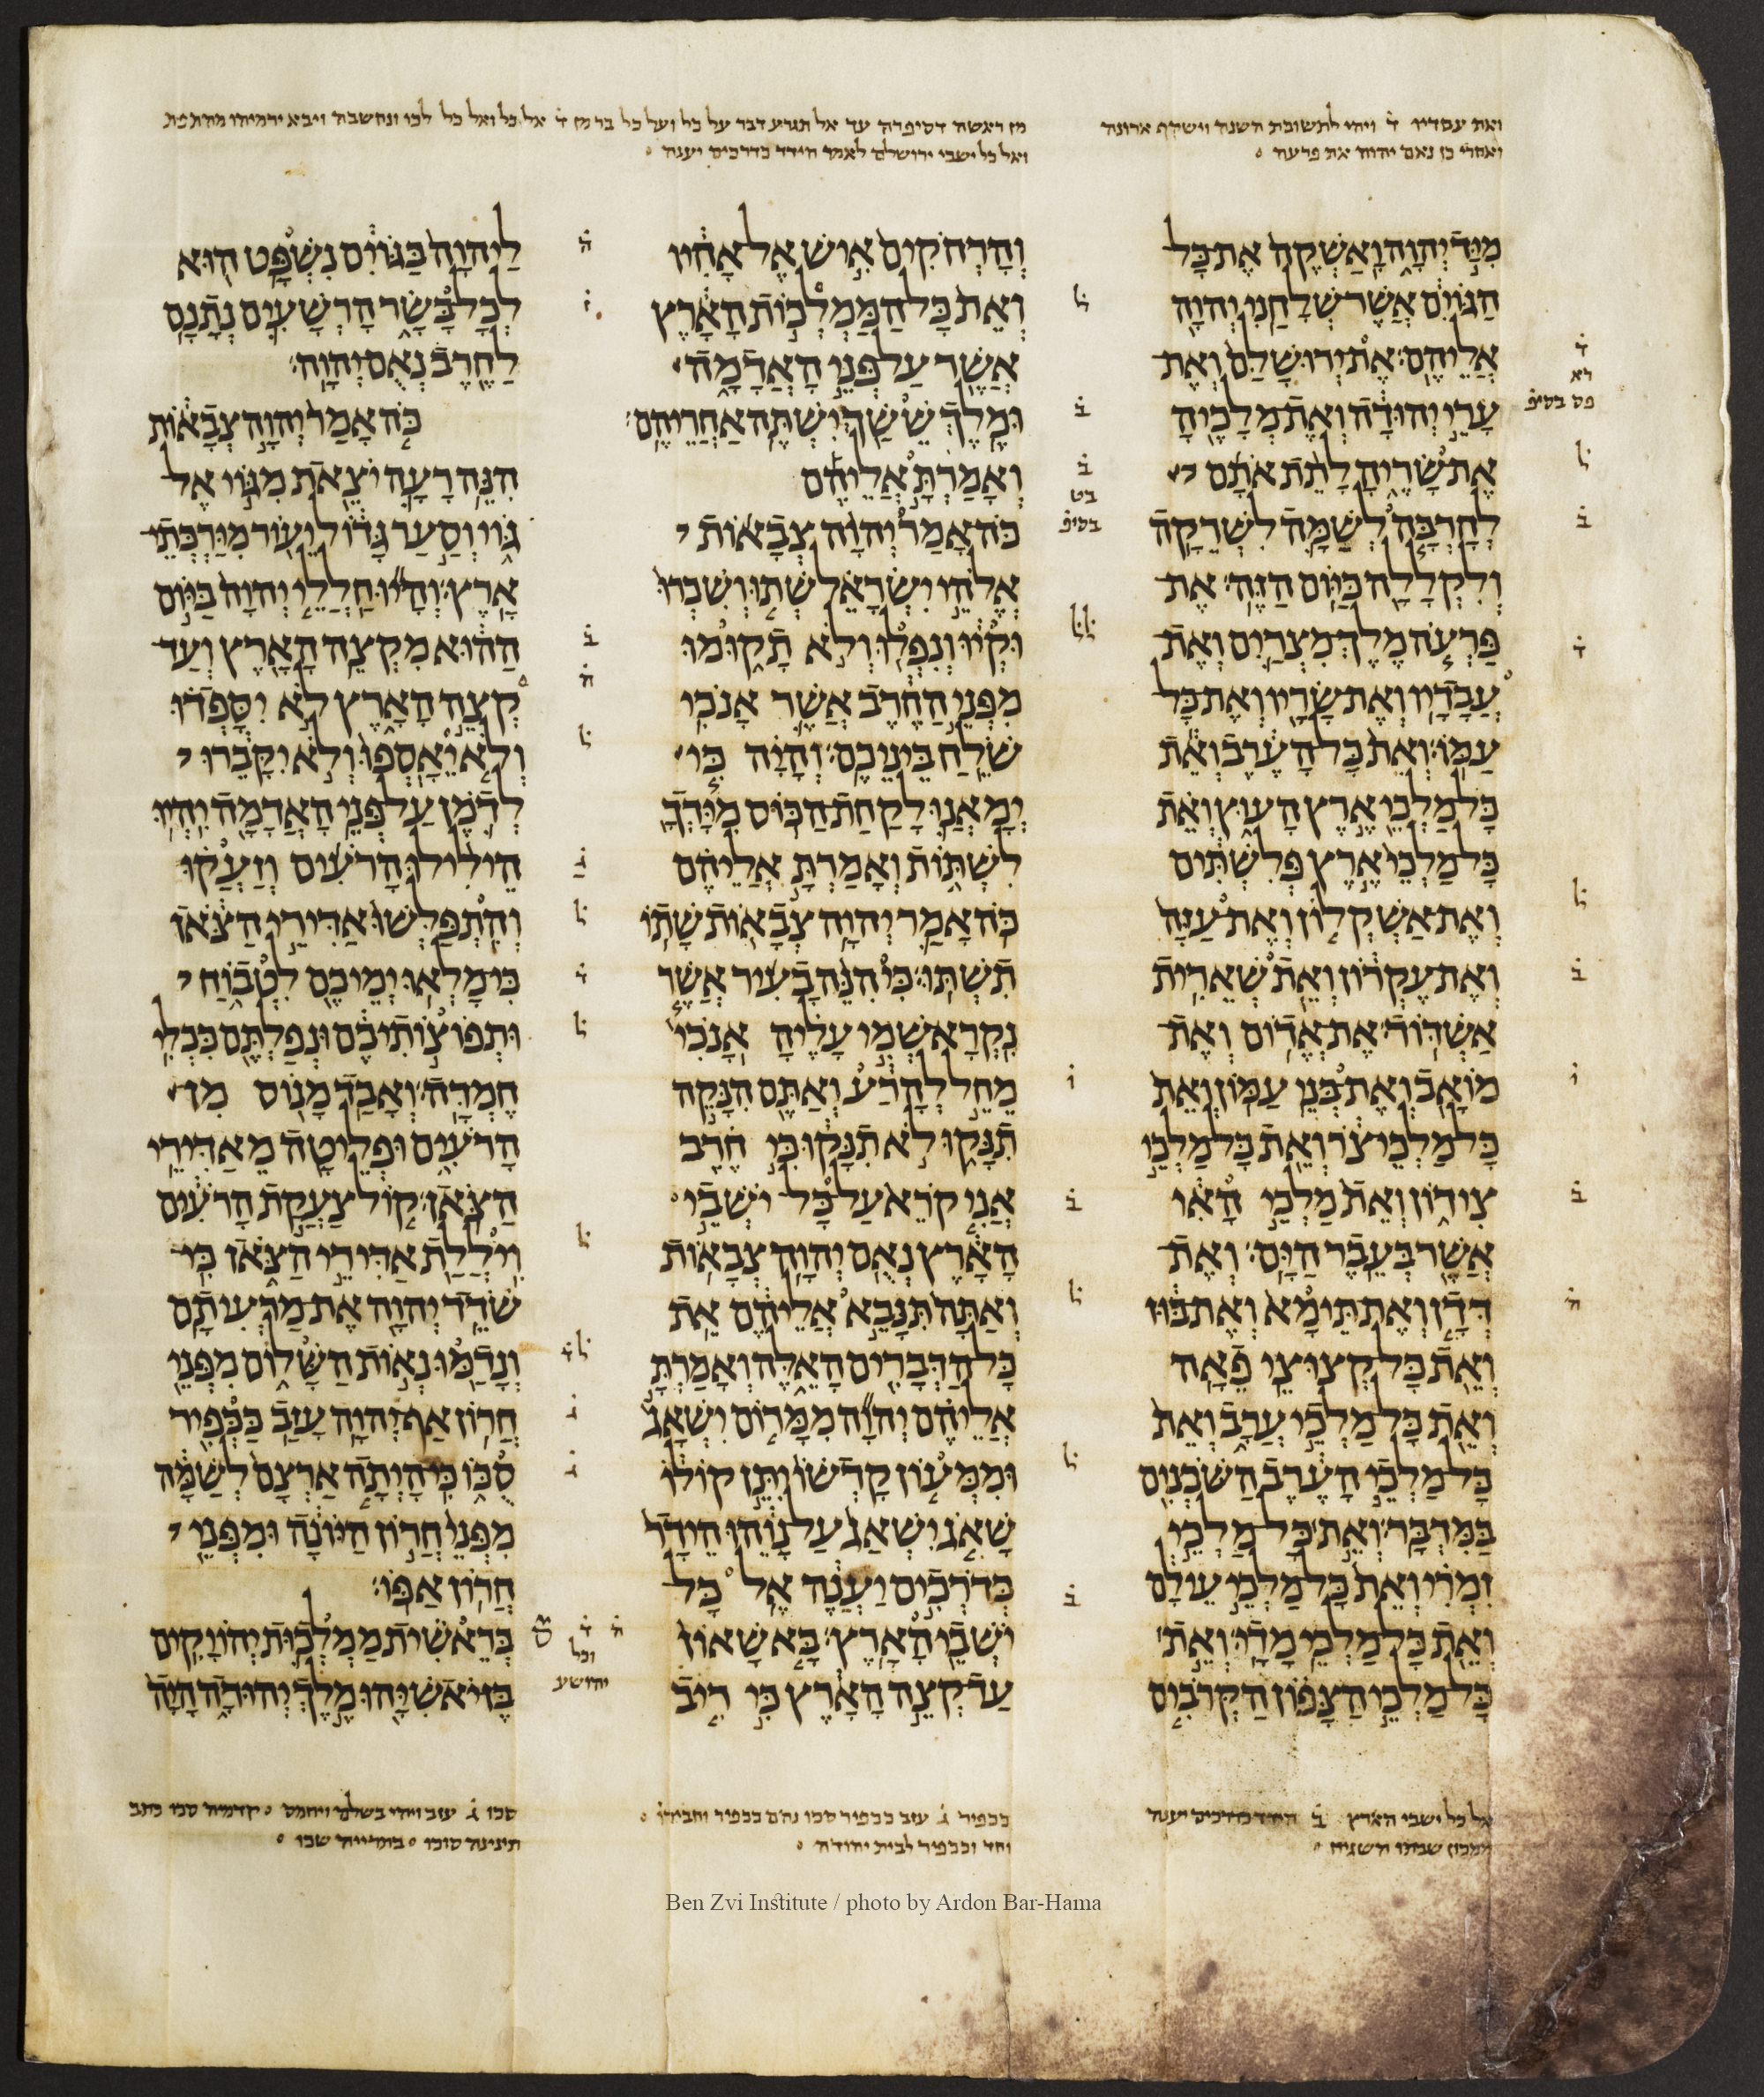 ואת עבדיו ד̇ ויהי לתשובת השנה וישקף ארונה
ואחרי כן נאם יהוה את פרעה
מן ראשה דסיפרה עד אל תגרע דבר על כל ועל כל בר מן ד̇ אל כל ואל כל לכו ונחשבה ויבא ירמיהו מהתפת
ואל כל ישבי ירושלם לאמר הידד כדרכים יענה
מִיַּד יְהוָה וָאַשְׁקֶה אֶת כָּל
הַגּוֹיִם אֲשֶׁר שְׁלָחַנִי יְהוָה
אֲלֵיהֶם׃ אֶת יְרוּשָׁלַ͏ִם וְאֶת
עָרֵי יְהוּדָה וְאֶת מְלָכֶיהָ
אֶת שָׂרֶיהָ לָתֵת אֹתָם
לְחָרְבָּה לְשַׁמָּה לִשְׁרֵקָה
וְלִקְלָלָה כַּיּוֹם הַזֶּה׃ אֶת
פַּרְעֹה מֶלֶךְ מִצְרַיִם וְאֶת
עֲבָדָיו וְאֶת שָׂרָיו וְאֶת כָּל
עַמּוֹ׃ וְאֵת כָּל הָעֶרֶב וְאֵת
כָּל מַלְכֵי אֶרֶץ הָעוּץ וְאֵת
כָּל מַלְכֵי אֶרֶץ פְּלִשְׁתִּים
וְאֶת אַשְׁקְלוֹן וְאֶת עַזָּה
וְאֶת עֶקְרוֹן וְאֵת שְׁאֵרִית
אַשְׁדּוֹד׃ אֶת אֱדוֹם וְאֶת
מוֹאָב וְאֶת בְּנֵי עַמּוֹן׃ וְאֵת
כָּל מַלְכֵי צֹר וְאֵת כָּל מַלְכֵי
צִידוֹן וְאֵת מַלְכֵי הָאִי
אֲשֶׁר בְּעֵבֶר הַיָּם׃ וְאֶת
דְּדָן וְאֶת תֵּימָא וְאֶת בּוּז
וְאֵת כָּל קְצוּצֵי פֵאָה׃
וְאֵת כָּל מַלְכֵי עֲרָב וְאֵת
כָּל מַלְכֵי הָעֶרֶב הַשֹּׁכְנִים
בַּמִּדְבָּר׃ וְאֵת כָּל מַלְכֵי
זִמְרִי וְאֵת כָּל מַלְכֵי עֵילָם
וְאֵת כָּל מַלְכֵי מָדָי׃ וְאֵת
כָּל מַלְכֵי הַצָּפוֹן הַקְּרֹבִים
וְהָרְחֹקִים אִישׁ אֶל אָחִיו
וְאֵת כָּל הַמַּמְלְכוֹת הָאָרֶץ
אֲשֶׁר עַל פְּנֵי הָאֲדָמָה
וּמֶלֶךְ שֵׁשַׁךְ יִשְׁתֶּה אַחֲרֵיהֶם׃
וְאָמַרְתָּ אֲלֵיהֶם
כֹּה אָמַר יְהוָה צְבָאוֹת
אֱלֹהֵי יִשְׂרָאֵל שְׁתוּ וְשִׁכְרוּ
וּקְיוּ וְנִפְלוּ וְלֹא תָקוּמוּ
מִפְּנֵי הַחֶרֶב אֲשֶׁר אָנֹכִי
שֹׁלֵחַ בֵּינֵיכֶם׃ וְהָיָה כִּי
יְמָאֲנוּ לָקַחַת הַכּוֹס מִיָּדְךָ
לִשְׁתּוֹת וְאָמַרְתָּ אֲלֵיהֶם
כֹּה אָמַר יְהוָה צְבָאוֹת שָׁתוֹ
תִשְׁתּוּ׃ כִּי הִנֵּה בָעִיר אֲשֶׁר
נִקְרָא שְׁמִי עָלֶיהָ אָנֹכִי
מֵחֵל לְהָרַע וְאַתֶּם הִנָּקֵה
תִנָּקוּ לֹא תִנָּקוּ כִּי חֶרֶב
אֲנִי קֹרֵא עַל כָּל יֹשְׁבֵי
הָאָרֶץ נְאֻם יְהוָה צְבָאוֹת׃
וְאַתָּה תִּנָּבֵא אֲלֵיהֶם אֵת
כָּל הַדְּבָרִים הָאֵלֶּה וְאָמַרְתָּ
אֲלֵיהֶם יְהוָה מִמָּרוֹם יִשְׁאָג
וּמִמְּעוֹן קָדְשׁוֹ יִתֵּן קוֹלוֹ
שָׁאֹג יִשְׁאַג עַל נָוֵהוּ הֵידָד
כְּדֹרְכִים יַעֲנֶה אֶל כָּל
יֹשְׁבֵי הָאָרֶץ׃ בָּא שָׁאוֹן
עַד קְצֵה הָאָרֶץ כִּי רִיב
לַיהוָה בַּגּוֹיִם נִשְׁפָּט הוּא
לְכָל בָּשָׂר הָרְשָׁעִים נְתָנָם
לַחֶרֶב נְאֻם יְהוָה׃
כֹּה אָמַר יְהוָה צְבָאוֹת
הִנֵּה רָעָה יֹצֵאת מִגּוֹי אֶל
גּוֹי וְסַעַר גָּדוֹל יֵעוֹר מִיַּרְכְּתֵי
אָרֶץ׃ וְהָיוּ חַלְלֵי יְהוָה בַּיּוֹם
הַהוּא מִקְצֵה הָאָרֶץ וְעַד
קְצֵה הָאָרֶץ לֹא יִסָּפְדוּ
וְלֹא יֵאָסְפוּ וְלֹא יִקָּבֵרוּ
לְדֹמֶן עַל פְּנֵי הָאֲדָמָה יִהְיוּ׃
הֵילִילוּ הָרֹעִים וְזַעֲקוּ
וְהִתְפַּלְּשׁוּ אַדִּירֵי הַצֹּאן
כִּי מָלְאוּ יְמֵיכֶם לִטְבוֹחַ
וּתְפוֹצוֹתִיכֶם וּנְפַלְתֶּם כִּכְלִי
חֶמְדָּה׃ וְאָבַד מָנוֹס מִן
הָרֹעִים וּפְלֵיטָה מֵאַדִּירֵי
הַצֹּאן׃ קוֹל צַעֲקַת הָרֹעִים
וִילֲלַת אַדִּירֵי הַצֹּאן כִּי
שֹׁדֵד יְהוָה אֶת מַרְעִיתָם׃
וְנָדַמּוּ נְאוֹת הַשָּׁלוֹם מִפְּנֵי
חֲרוֹן אַף יְהוָה׃ עָזַב כַּכְּפִיר
סֻכּוֹ כִּי הָיְתָה אַרְצָם לְשַׁמָּה
מִפְּנֵי חֲרוֹן הַיּוֹנָה וּמִפְּנֵי
חֲרוֹן אַפּוֹ׃
בְּרֵאשִׁית מַמְלְכוּת יְהוֹיָקִים
בֶּן יֹאשִׁיָּהוּ מֶלֶךְ יְהוּדָה הָיָה
אל כל ישבי הארץ ב̇ הידד כדרכים יענה
ממכון שבתו השגיח
ככפיר ג̇ עזב ככפיר סכו נהם ככפיר וחבירו
וחד וככפיר לבית יהודה
סכו ג̇ עזב ויהי בשלם קדמיה סכו כתב
תינינה סוכו
Ben Zvi Institute / photo by Ardon Bar-Hama